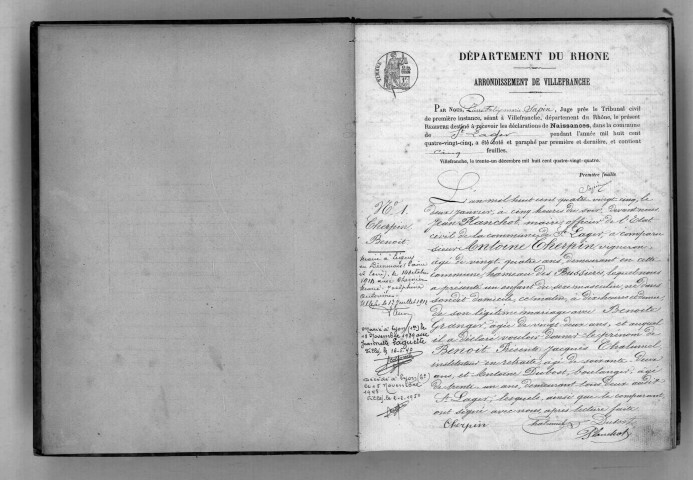 DÉPARTEMENT DU RHONE
ARRONDISSEMENT DE VILLEFRANCHE
PAR NOUS, Sapin, Juge près le Tribunal civil
de première instance, séant à Villefranche, département du Rhône, le présent
REGISTRE destiné à recevoir les déclarations de Naissances, dans la commune
de St Lager pendant l'année mil huit cent
quatre-vingt-cinq, a été coté et paraphé par première et dernière, et contient
cinq feuilles.
Villefranche, le trente-un décembre mil huit cent quatre-vingt-quatre.
Première feuille
Sapin
No 1.
Cherpin
Benoit
L'an mil huit cent quatre vingt cinq, le
deux janvier, à cinq heures du soir, devant nous
Jean Planchot, maire, officier de l'Etat
civil de la commune de St Lager, a comparu
sieur Antoine Cherpin, vigneron,
âgé de vingt quatre ans, demeurant en cette
commune, hameau des Bussières, lequel nous
a présenté un enfant du sexe masculin, né dans
son dit domicile, ce matin, à dix heures,
de son légitime mariage avec Benoite
Granger, âgée de vingt deux ans, et auquel
il a déclaré vouloir donner le prénom de
Benoit. Présents Jacques Chalumel
instituteur en retraite, âgé de soixante deux
ans, et Antoine Dubost, boulanger, âgé
de trente un ans, demeurant tous deux audit
St Lager, lesquels, ainsi que le comparant,
ont signé avec nous après lecture faite
Cherpin Chalumel Dubost
Planchot
Marié à
le 14 octobre
1911 avec
Joséphine
Marié à Lyon le
novembre 1939 avec
Décédé à Lyon
le 8 Novembre
1950